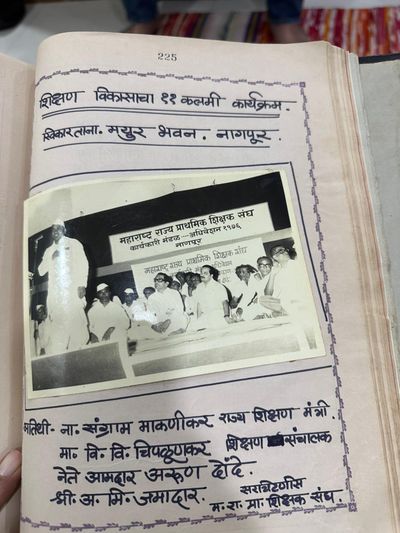 225
शिक्षण विकासाचा ११ कलमी कार्यक्रम.
स्विकारताना. मयुर भवन. नागपूर.
महाराष्ट्र राज्य प्राथमिक शिक्षक संघ
कार्यकारी मंडळ—अधिवेशन १९७६
नागपूर
महाराष्ट्र राज्य प्राथमिक शिक्षक
अतिथी- ना. संग्राम माकणीकर राज्य शिक्षण मंत्री.
मा. वि. वि. चिपळुणकर शिक्षण संचालक
नेते आमदार अरुण दोंदे.
श्री. अ. मि. जमादार. सरचिटणीस
म. रा. प्रा. शिक्षक संघ.